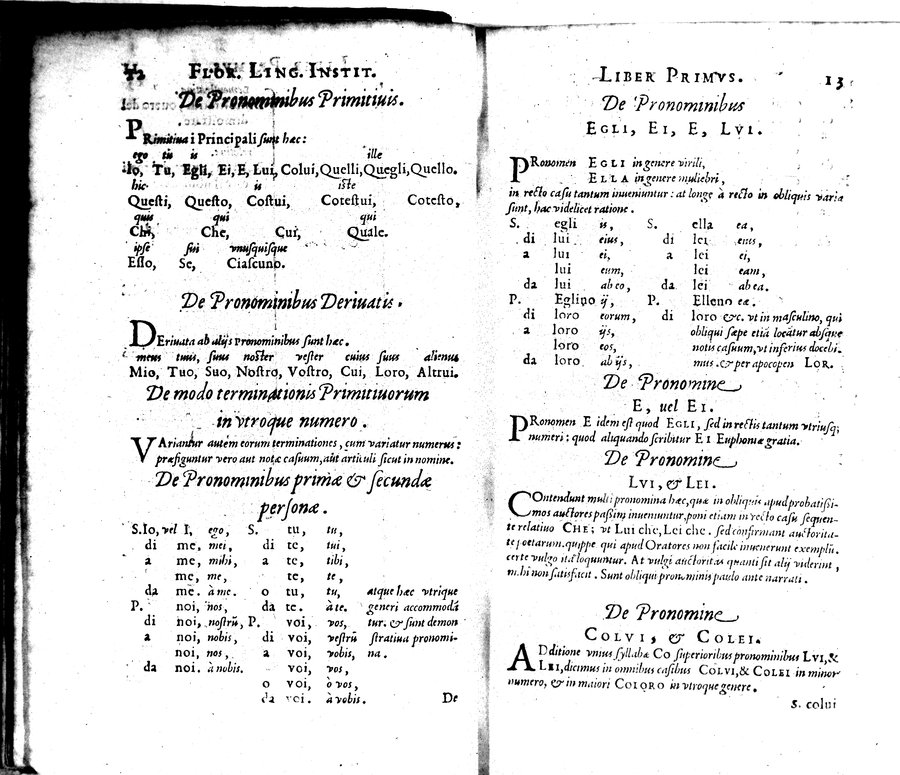 12 FLOR. LING. INSTIT.
De Pronominibus Primitiuis.
PRimitiua i Principali sunt hæc:
ego tu is is ille
Io, Tu, Egli, Ei, E, Lui, Colui, Quelli, Quegli, Quello.
hic is iste
Questi, Questo, Costui, Cotestui, Cotesto,
quis qui qui
Chi, Che, Cui, Quale.
ipse sui vnusquisque
Esso, Se, Ciascuno.
De Pronominibus Deriuatis.
DEriuata ab alijs pronominibus sunt hæc.
meus tuus, suus noster vester cuius suus alienus
Mio, Tuo, Suo, Nostro, Vostro, Cui, Loro, Altrui.
De modo terminationis Primitiuorum
in vtroque numero.
VAriantur autem eorum terminationes, cum variatur numerus:
præfiguntur vero aut notæ casuum, aut articuli sicut in nomine.
De Pronominibus primæ & secundæ
personæ.
S. Io, vel I, ego, S. tu, tu,
di me, mei, di te, tui,
a me, mihi, a te, tibi,
me, me, te, te,
da me. à me. o tu, tu, atque hæc vtrique
P. noi, nos, da te. à te. generi accommodã
di noi, nostrũ, P. voi, vos, tur. & sunt demon
a noi, nobis, di voi, vestrũ stratiua pronomi-
noi, nos, a voi, vobis, na.
da noi. à nobis. voi, vos,
o voi, ò vos,
da voi. à vobis. De
LIBER PRIMVS. 13
De Pronominibus
EGLI, EI, E, LVI.
PRonomen EGLI in genere virili,
ELLA in genere muliebri,
in recto casu tantum inueniuntur: at longe à recto in obliquis varia
sunt, hac videlicet ratione.
S. egli is, S. ella ea,
di lui eius, di lei eius,
a lui ei, a lei ei,
lui eum, lei eam,
da lui ab eo, da lei ab ea.
P. Eglino ij, P. Elleno eæ.
di loro eorum, di loro &c. vt in masculino, qui
a loro ijs, obliqui sæpe etiã locãtur absque
loro eos, notis casuum, vt inferius docebi.
da loro ab ijs, mus. & per apocopen LOR.
De Pronomine
E, uel EI.
PRonomen E idem est quod EGLI, sed in rectis tantum vtriusq;
numeri: quod aliquando scribitur EI Euphoniæ gratia.
De Pronomine
LVI, & LEI.
COntendunt multi pronomina hæc, quæ in obliquis apud probatissi-
mos auctores passim inueniuntur, poni etiam in recto casu sequen-
te relatiuo CHE; vt Lui che, Lei che. sed confirmant auctorita-
te poetarum. quippe qui apud Oratores non facile inuenerunt exemplũ.
certe vulgo ita loquuntur. At vulgi auctoritas quanti sit alij viderint,
mihi non satisfacit. Sunt obliqui pronominis paulo ante narrati.
De Pronomine
COLVI, & COLEI.
ADditione vnius syllabæ Co superioribus pronominibus LVI, &
LEI, dicimus in omnibus casibus COLVI, & COLEI in minor
numero, & in maiori COLORO in vtroque genere.
S. colui